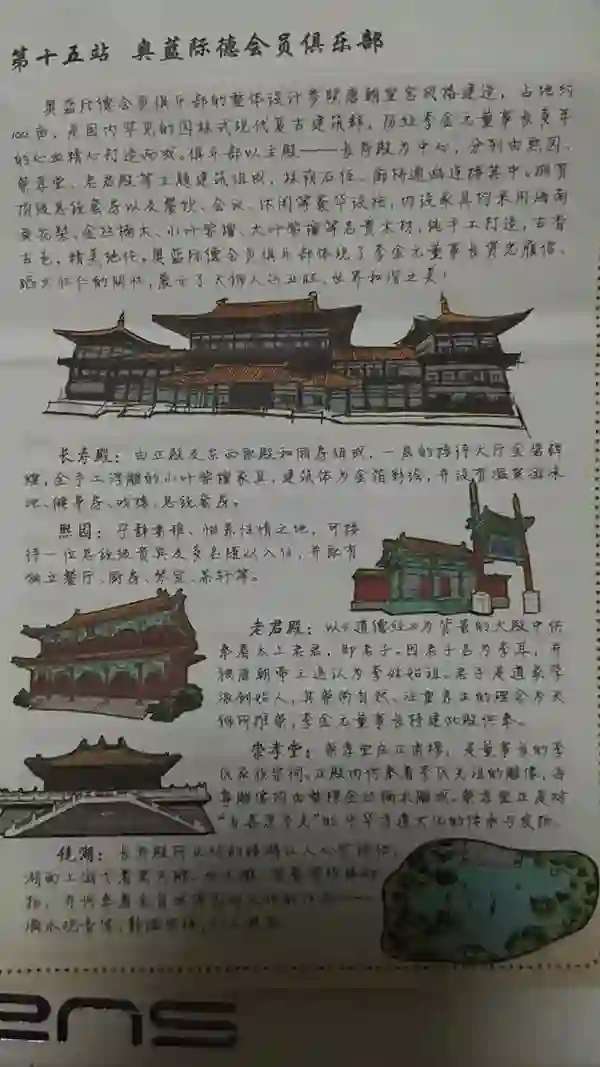 第十五站 奥蓝际德会员俱乐部
奥蓝际德会员俱乐部的整体设计参照唐朝皇宫风格建造，占地约
100亩，是国内罕见的园林式现代复古建筑群，历经李金元董事长多年
的心血精心打造而成。俱乐部以主殿——长寿殿为中心，分别由熙园、
崇孝堂、老君殿等主题建筑组成，
顶级总统套房以及餐饮、会议、休闲等豪华设施，内设家具均采用海南
黄花梨、金丝楠木、小叶紫檀、大叶紫檀等名贵木材，纯手工打造，古香
古色，精美绝伦。奥蓝际德会员俱乐部体现了李金元董事长
的胸怀，展示了天狮人
长寿殿：由正殿及东西配殿和厢房组成，一层的接待大厅金碧辉
煌，全手工浮雕的小叶紫檀家具，建筑体为金箔彩绘，并设有温泉游泳
池、健身房、总统套房。
熙园：宁静素雅、怡养性情之地，可接
待一位总统级贵宾及多名随从入住，并配有
独立餐厅、厨房、琴室、茶轩等。
老君殿：以《道德经》为背景的大殿中供
奉着太上老君，即老子。因老子名为李耳，并
被唐朝帝王追认为李姓始祖。老子是道家学
派创始人，其崇尚自然、注重养生的理念为天
狮所推崇，李金元董事长特建此殿供奉。
崇孝堂：崇孝堂在正南楼，是董事长的李
氏家族祠堂。正殿内供奉着李氏先祖的雕像，每
尊雕像均由整根金丝楠木雕成。崇孝堂正是对
“百善孝为先”的中华孝道文化的传承与发扬。
镜湖：
湖面上游弋着黑天鹅、
滴水观音像，
ens